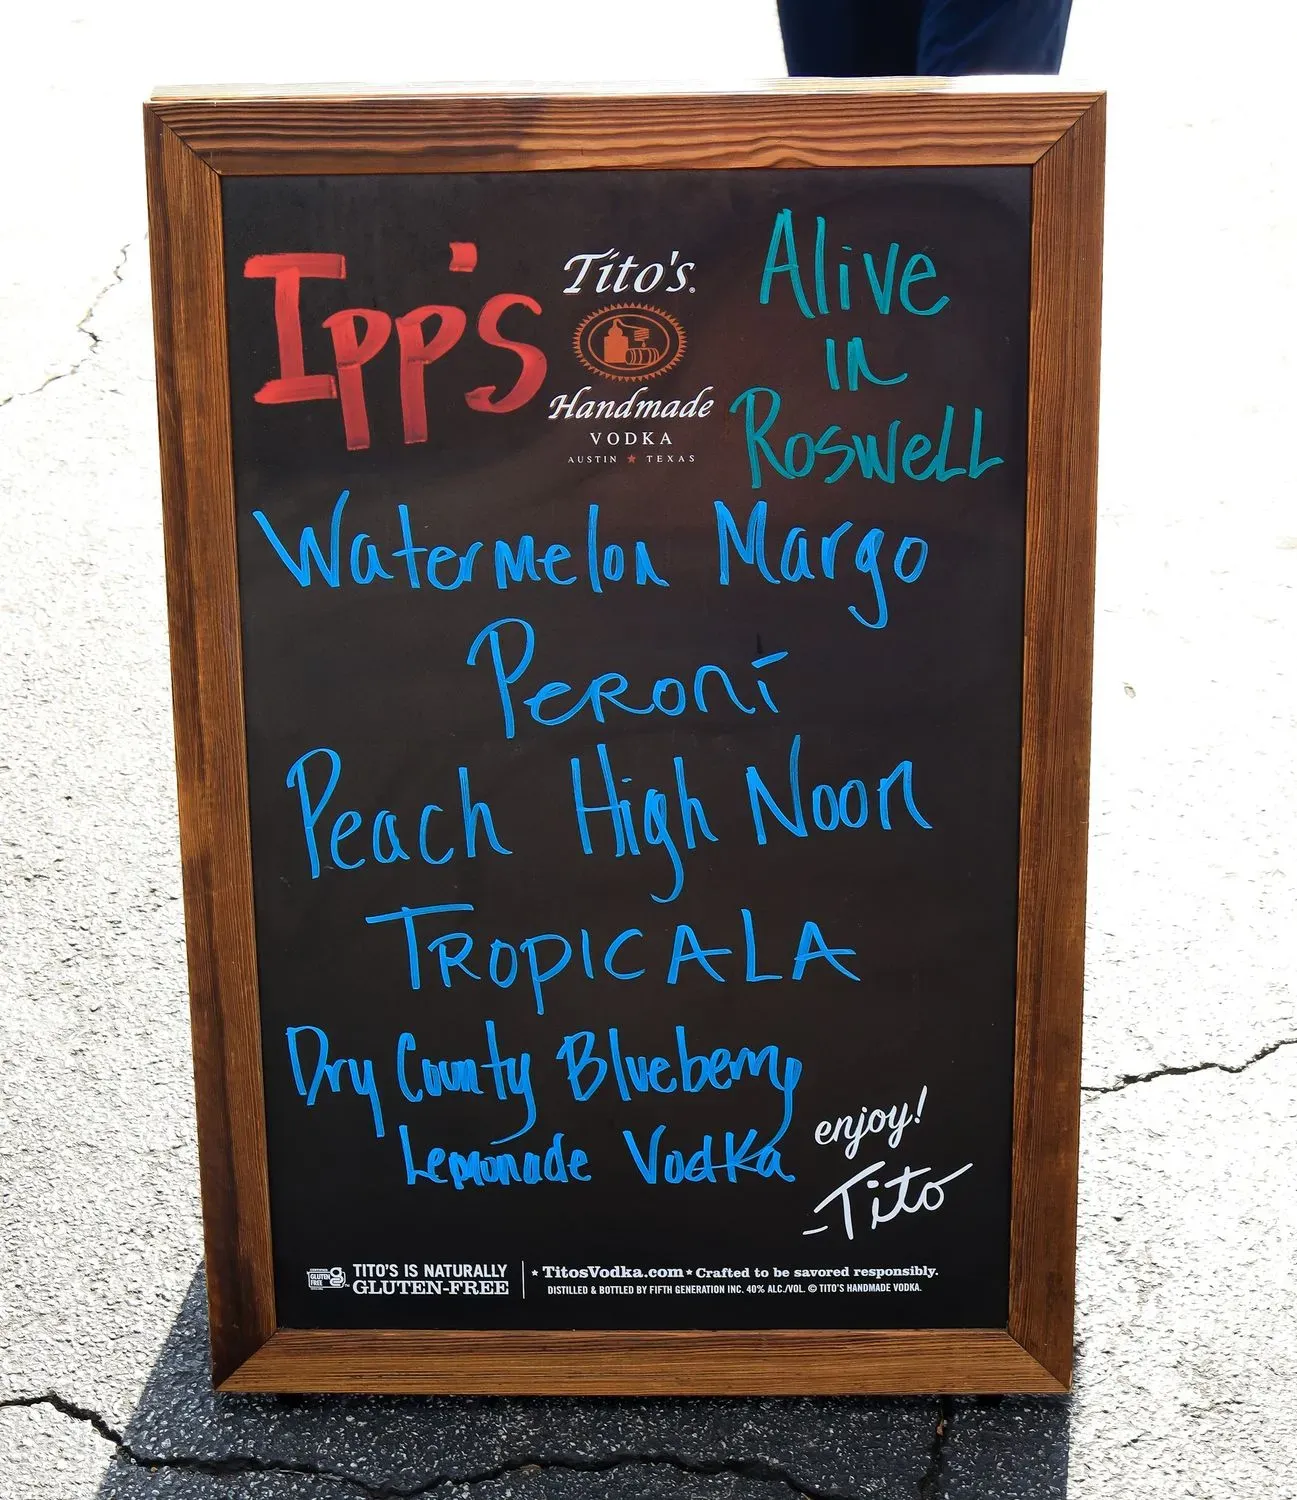 Ipp's
Tito's
Handmade
VODKA
AUSTIN ★ TEXAS
Alive
in
Roswell
Watermelon Margo
Peroni
Peach High Noon
TROPICALA
Dry County Blueberry
Lemonade Vodka
enjoy!
-Tito
CERTIFIED
GLUTEN
FREE
TITO'S IS NATURALLY
GLUTEN-FREE
* TitosVodka.com * Crafted to be savored responsibly.
DISTILLED & BOTTLED BY FIFTH GENERATION INC. 40% ALC./VOL. © TITO'S HANDMADE VODKA.